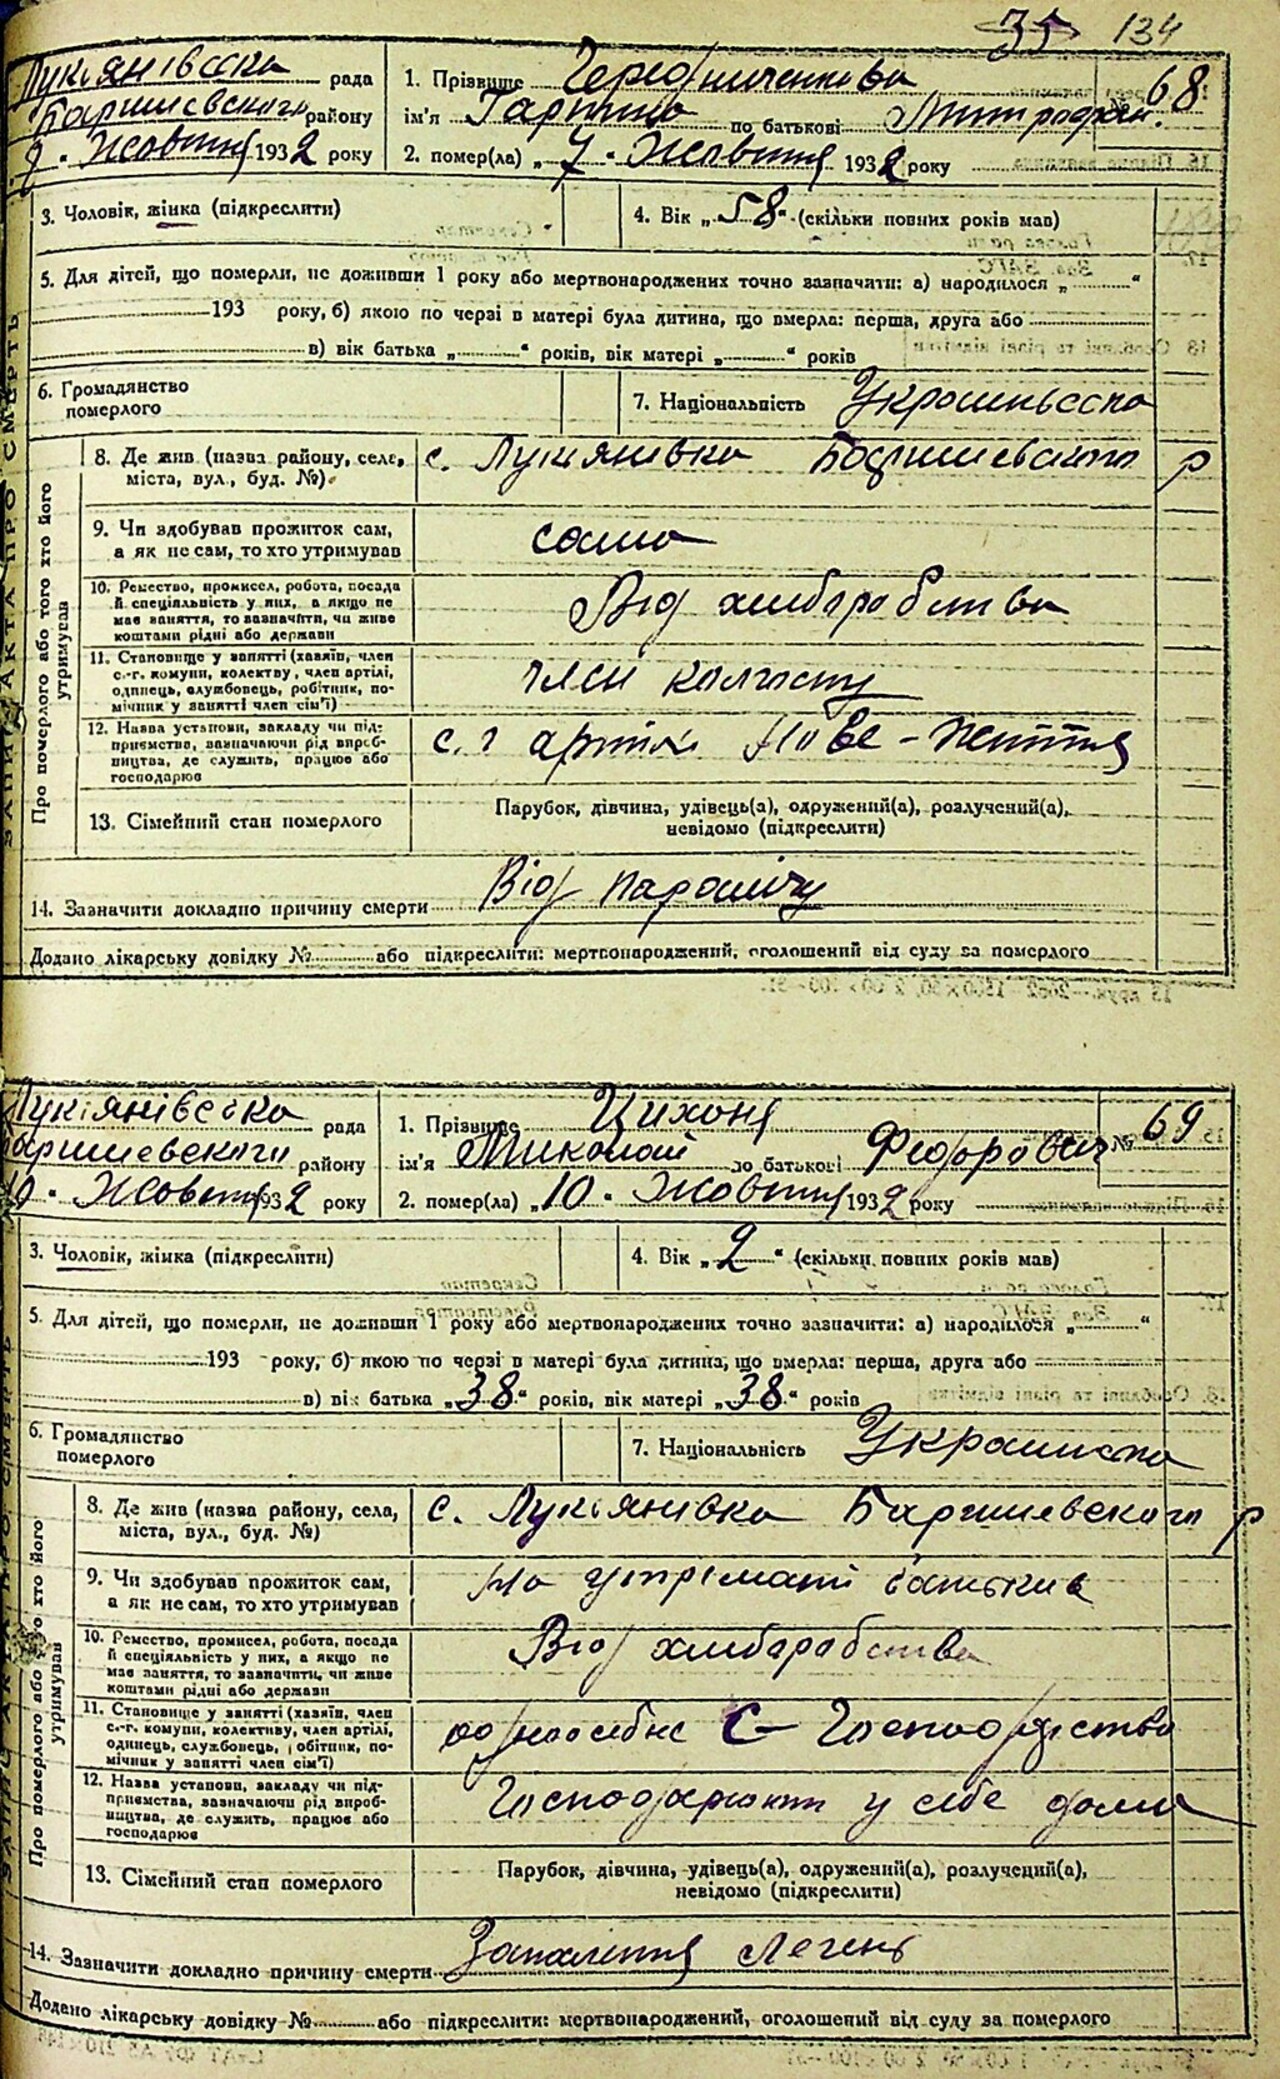 35 134
Лукіянівська рада
Баришевского району
9 " Жовтня 1932 року
1. Прізвище Чередниченкова
№ 68
ім'я по батькові Митрофан.
2. помер(ла) „ 7 " Жовтня 1932 року
3. Чоловік, жінка (підкреслити)
4. Вік „ 58 " (скільки повних років мав)
5. Для дітей, що померли, не доживши 1 року або мертвонароджених точно зазначити: а) народилося „ "
193 року, б) якою по черзі в матері була дитина, що вмерла: перша, друга або
в) вік батька „ " років, вік матері „ " років
6. Громадянство померлого
7. Національність Украиньска
ЗАПИС АКТА ПРО СМЕРТЬ
Про померлого або того хто його утримував
8. Де жив (назва району, села, міста, вул., буд. №)
с. Лукіянивка Баришевского р
9. Чи здобував прожиток сам, а як не сам, то хто утримував
сама
10. Ремество, промисел, робота, посада й спеціяльність у них, а якщо не має заняття, то зазначити, чи живе коштами рідні або держави
Від хлибаробства
11. Становище у занятті (хазяїн, член с.-г. комуни, колективу, член артілі, одинець, службовець, робітник, помічник у занятті член сім'ї)
член колгоспу
12. Назва установи, закладу чи підприємства, зазначаючи рід виробництва, де служить, працює або господарює
с. г артіл Нове - Життя
13. Сімейний стан померлого
Парубок, дівчина, удівець(а), одружений(а), розлучений(а),
невідомо (підкреслити)
14. Зазначити докладно причину смерти Від паролічу
Додано лікарську довідку № або підкреслити: мертвонароджений, оголошений від суду за померлого
Лукіянівська рада
Баришевского району
10 " Жовтня 1932 року
1. Прізвище Цихоня
№ 69
ім'я Миколай по батькові Федорович
2. помер(ла) „ 10 " Жовтня 1932 року
3. Чоловік, жінка (підкреслити)
4. Вік „ 2 " (скільки повних років мав)
5. Для дітей, що померли, не доживши 1 року або мертвонароджених точно зазначити: а) народилося „ "
193 року, б) якою по черзі в матері була дитина, що вмерла: перша, друга або
в) вік батька „ 38 " років, вік матері „ 38 " років
6. Громадянство померлого
7. Національність
ЗАПИС АКТА ПРО СМЕРТЬ
Про померлого або того хто його утримував
8. Де жив (назва району, села, міста, вул., буд. №)
с. Лукьянівка Баришевского р
9. Чи здобував прожиток сам, а як не сам, то хто утримував
На утрімані батьків
10. Ремество, промисел, робота, посада й спеціяльність у них, а якщо не має заняття, то зазначити, чи живе коштами рідні або держави
Від хлибаробства
11. Становище у занятті (хазяїн, член с.-г. комуни, колективу, член артілі, одинець, службовець, робітник, помічник у занятті член сім'ї)
одноосібне С- Господарство
12. Назва установи, закладу чи підприємства, зазначаючи рід виробництва, де служить, працює або господарює
Господарюють у себе дома
13. Сімейний стан померлого
Парубок, дівчина, удівець(а), одружений(а), розлучений(а),
невідомо (підкреслити)
14. Зазначити докладно причину смерти Запаління Легень
Додано лікарську довідку № або підкреслити: мертвонароджений, оголошений від суду за померлого